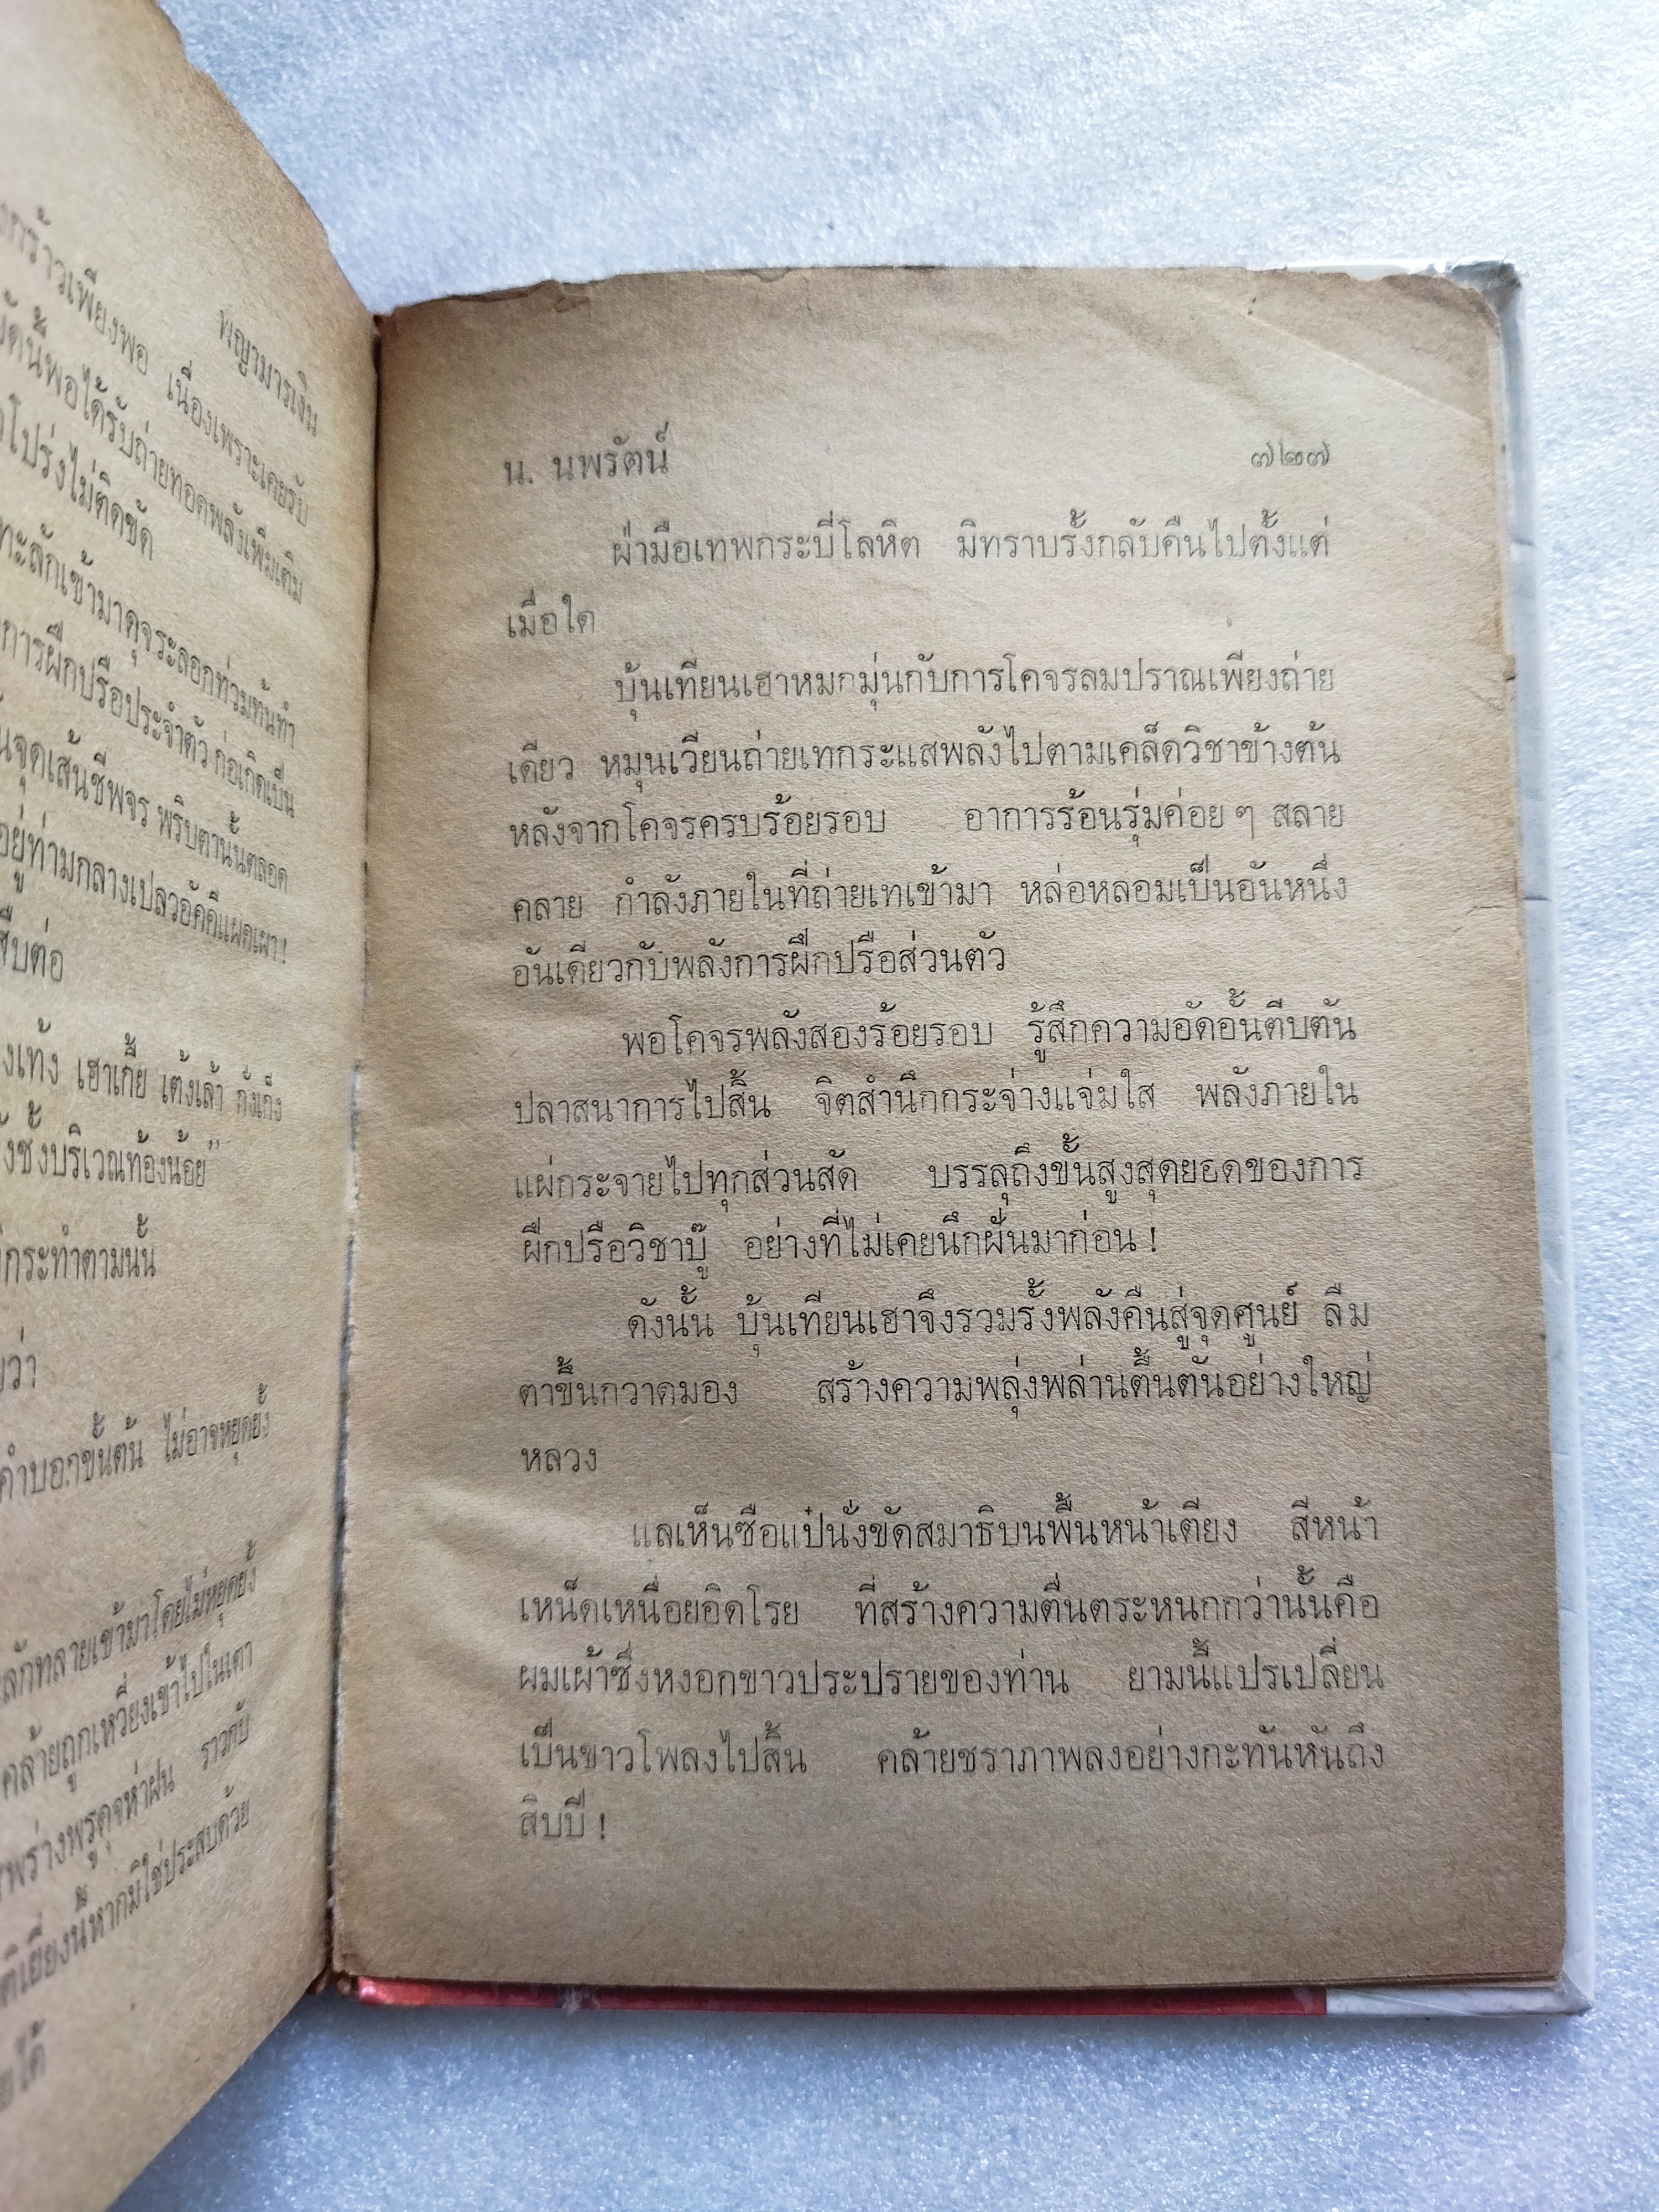 พญามารเงิน
พร้าวเพียงพอ เนื่องเพราะเคยรับ
นี้พอได้รับถ่ายทอดพลังเพิ่มเติม
โปร่งไม่ติดขัด
ทะลักเข้ามาดุจระลอกท่วมท้นทำ
การฝึกปรือประจำตัว ก่อเกิดเป็น
จุดเส้นชีพจร พริบตานั้นตลอด
อยู่ท่ามกลางเปลวอัคคีแผดเผา!
สืบต่อ
เฮาเกี้ย เต้งเล้า กังเก็ง
บริเวณท้องน้อย"
กระทำตามนั้น
ว่า
คำบอกขั้นต้น ไม่อาจหยุดยั้ง
ลักทลายเข้ามาโดยไม่หยุดยั้ง
คล้ายถูกเหวี่ยงเข้าไปในเตา
พร่างพรูดุจห่าฝน ราวกับ
เยี่ยงนี้หากมิใช่ประสบด้วย
ได้
น. นพรัตน์ ๗๒๗
ฝ่ามือเทพกระบี่โลหิต มิทราบรั้งกลับคืนไปตั้งแต่
เมื่อใด
บุ้นเทียนเฮาหมกมุ่นกับการโคจรลมปราณเพียงถ่าย
เดียว หมุนเวียนถ่ายเทกระแสพลังไปตามเคล็ดวิชาข้างต้น
หลังจากโคจรครบร้อยรอบ อาการร้อนรุ่มค่อย ๆ สลาย
คลาย กำลังภายในที่ถ่ายเทเข้ามา หล่อหลอมเป็นอันหนึ่ง
อันเดียวกับพลังการฝึกปรือส่วนตัว
พอโคจรพลังสองร้อยรอบ รู้สึกความอัดอั้นตีบตัน
ปลาสนาการไปสิ้น จิตสำนึกกระจ่างแจ่มใส พลังภายใน
แผ่กระจายไปทุกส่วนสัด บรรลุถึงขั้นสูงสุดยอดของการ
ฝึกปรือวิชาบู๊ อย่างที่ไม่เคยนึกฝันมาก่อน !
ดังนั้น บุ้นเทียนเฮาจึงรวมรั้งพลังคืนสู่จุดศูนย์ ลืม
ตาขึ้นกวาดมอง สร้างความพลุ่งพล่านตื้นตันอย่างใหญ่
หลวง
แลเห็นซือแป๋นั่งขัดสมาธิบนพื้นหน้าเตียง สีหน้า
เหน็ดเหนื่อยอิดโรย ที่สร้างความตื่นตระหนกกว่านั้นคือ
ผมเผ้าซึ่งหงอกขาวประปรายของท่าน ยามนี้แปรเปลี่ยน
เป็นขาวโพลงไปสิ้น คล้ายชราภาพลงอย่างกะทันหันถึง
สิบปี !